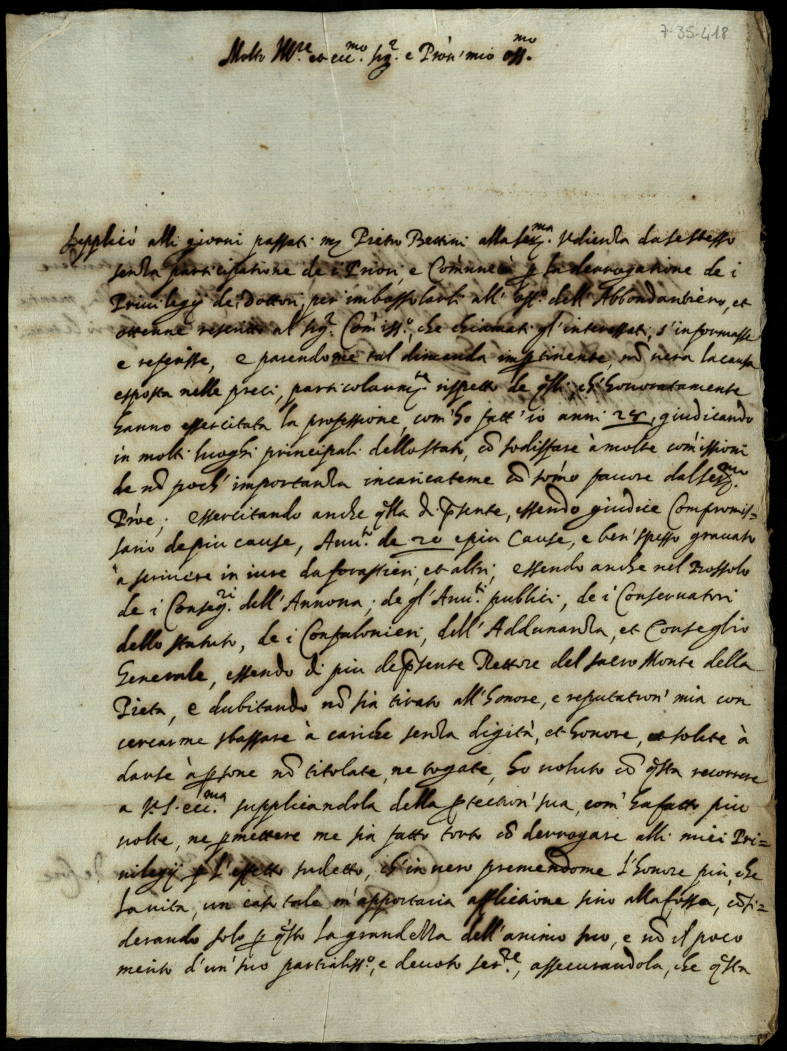 7-35-418
Molto Ill.re et ecc.mo Sig.r e Pron' mio oss.mo
Supplicò alli giorni passati m Pietro Bettini alla Ser.ma Udienza da se stesso
senza participatione de i Priori, e Comunità p la derrogatione de i
Privilegij de Dottori, per imbossolarli all' off.o dell'Abbondantiero, et
ottenne rescritto al Sig.r Com'iss.o, che chiamati gl'interessati, s'informasse
e referisse, e parendome tal dimanda imptinente, nō vera la causa
esposta nelle preci, particolarm.te rispetto de qlli ch'honoratamente
hanno essercitata la professione, com'ho fatt'io anni 28, giudicando
in molti luoghi principali dello stato, cō sodisfare à molte com'issioni
de nō poch'importanza incaricateme cō som'o favore dal Ser.mo
Pn'pe; essercitando anche qsta di psente, essendo giudice Compromis=
sario de piu cause, Avv.to de 20 e piu Cause, e ben spesso gravato
à scrivere in iure da forastieri, et altri; essendo anche nel Bossolo
de i Conseg.ri dell'Annona; de gl'Avv.ti publici, de i Conservatori
dello statuto, de i Confalonieri, dell'Addunanza, et Conseglio
Generale, essendo di piu de psente Rettore del sacro Monte della
Pietà, e dubitando nō sia tirato all'honore, e reputation' mia con
cercarme sbassare à cariche senza dignità, et honore, et solite à
darse à psone nō titolate, ne togate, ho voluto cō qsta recorrere
a V.S. ecc.ma supplicandola della ptection' sua, com'ha fatto piu
volte, ne pmettere me sia fatto torto cō derrogare alli miei Pri=
vilegij p l'effetto sudetto, ch'in vero premendome l'honore piu, che
la vita, un caso tale m'apportaria afflictione sino alla fossa, cōsi=
derando solo p qsto la grandezza dell'animo suo, e nō il poco
merito d'un suo partialiss.o, e devoto ser.re, assecurandola, che qsta